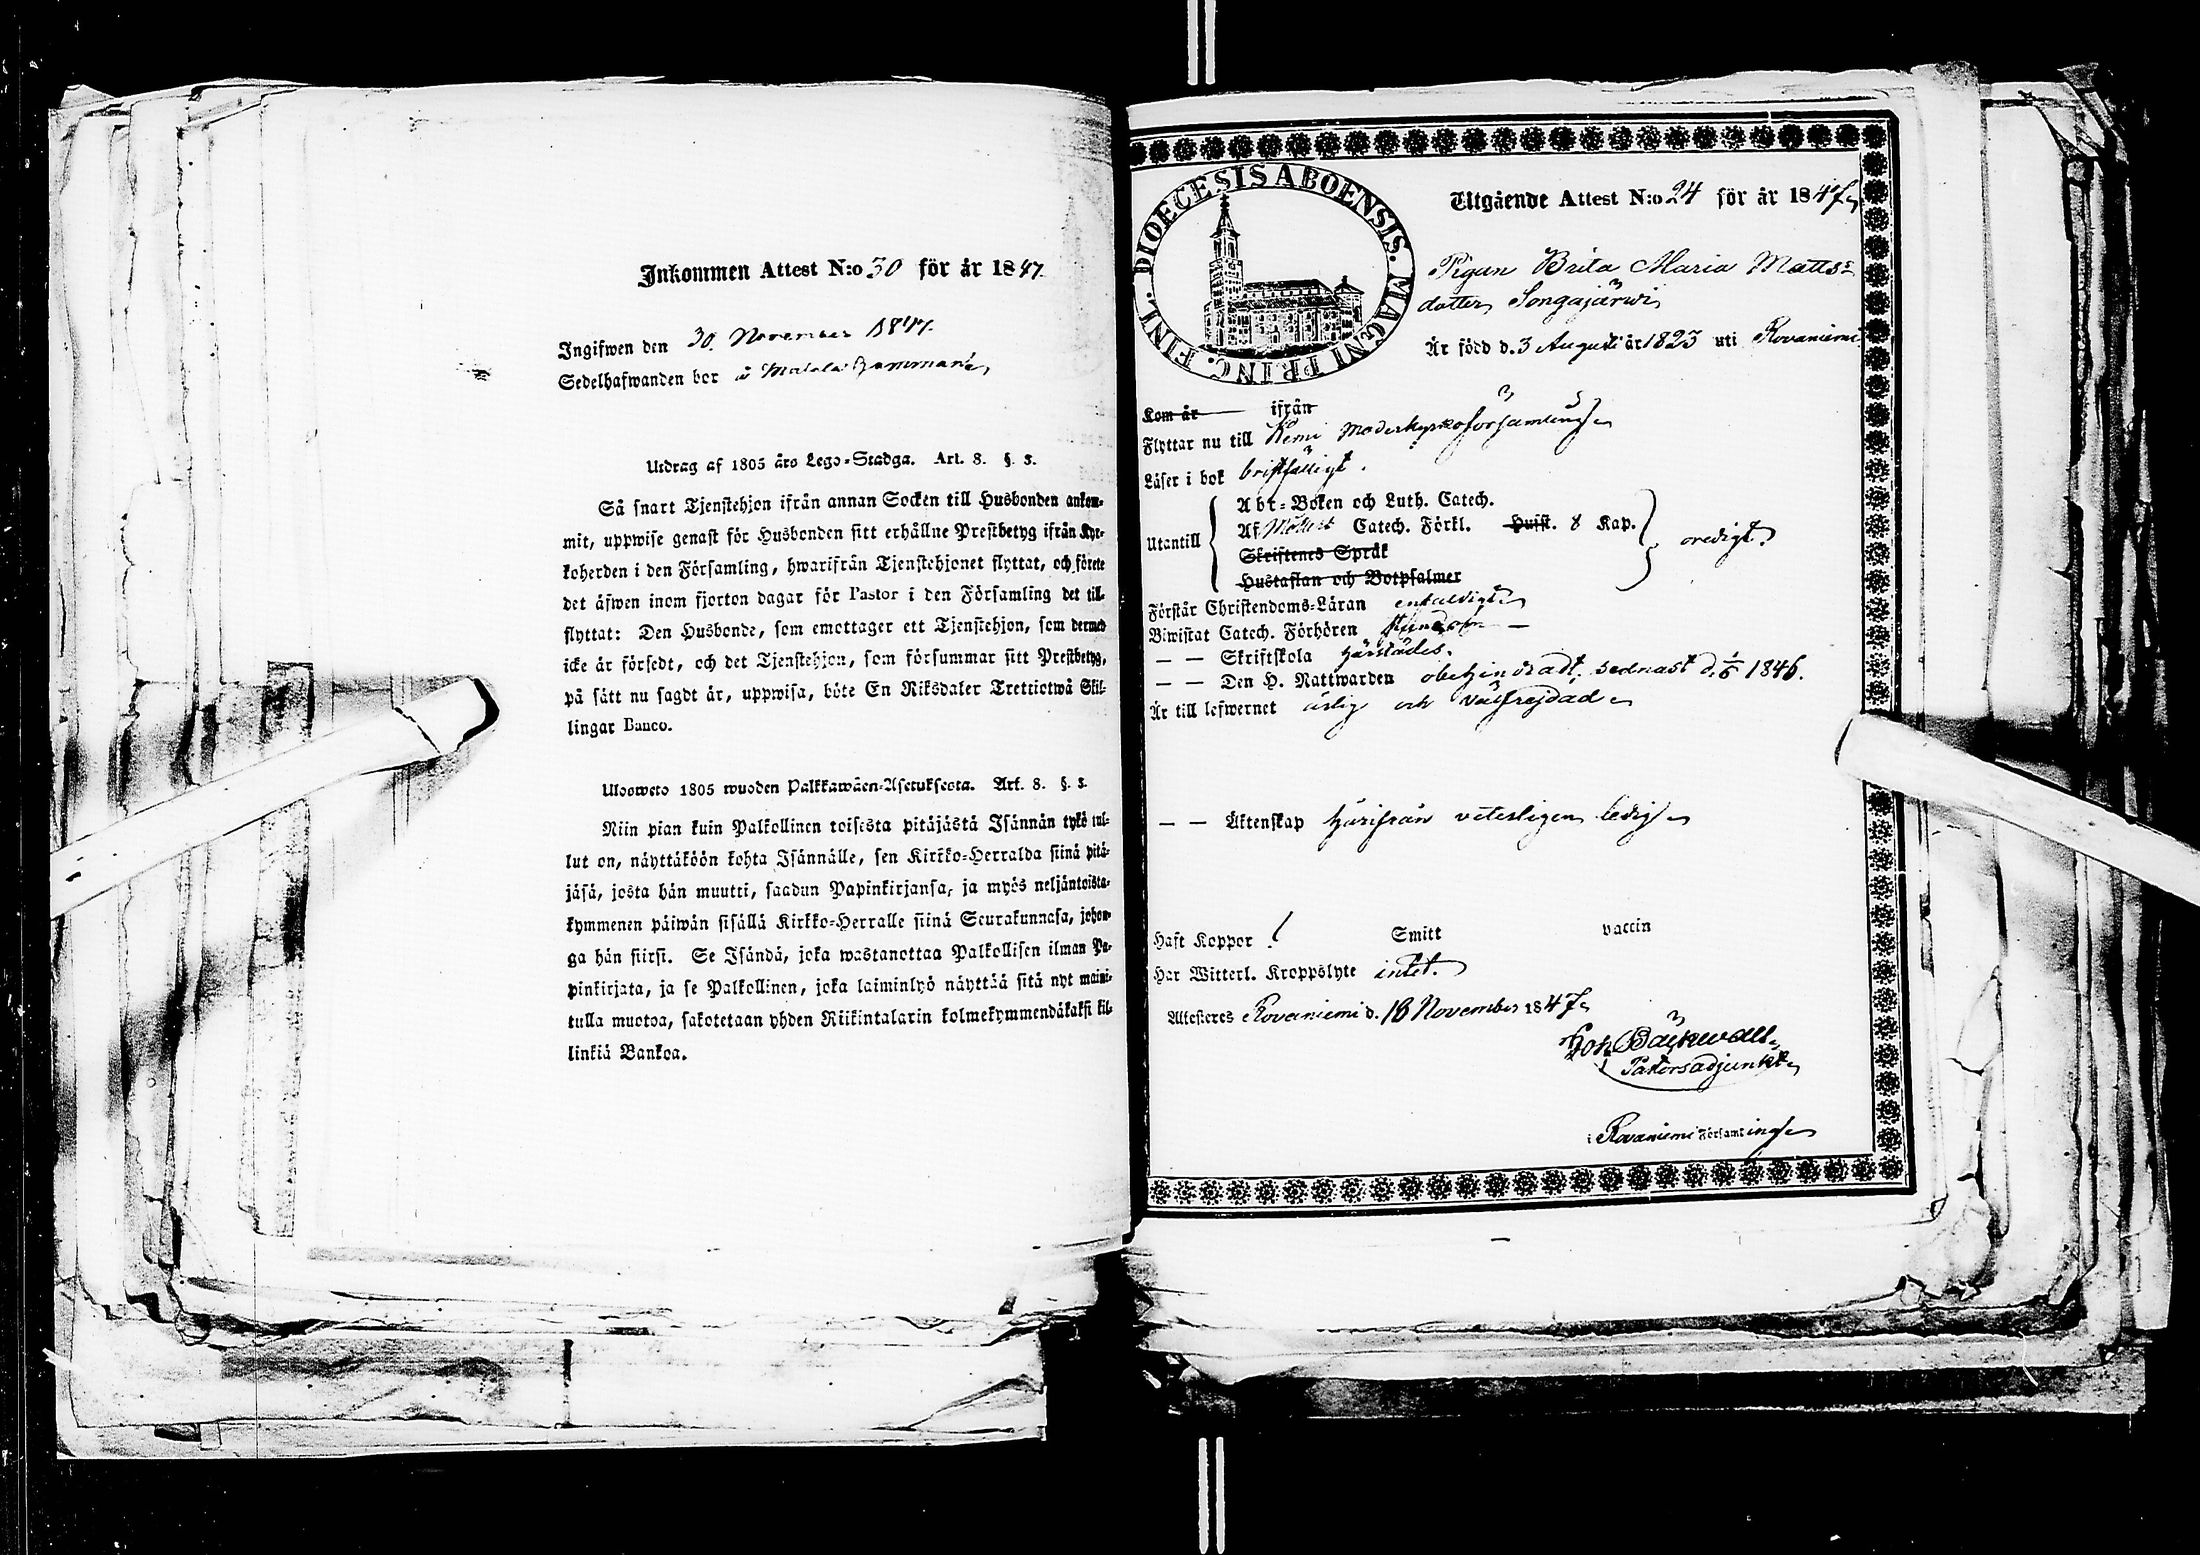 Inkommen Attest N:o 30 för år 1847.
Ingifwen den 30. November 1847.
Sedelhafwanden bor å
Utdrag af 1805 års Lego-Stadga. Art. 8. §. 3.
Så snart Tjenstehjon ifrån annan Socken till Husbonden ankom-
mit, uppwise genast för Husbonden sitt erhållne Prestbetyg ifrån Kyr-
koherden i den Församling, hwarifrån Tjenstehjonet flyttat, och förete
det äfwen inom fjorton dagar för Pastor i den Församling det till-
flyttat: Den Husbonde, som emottager ett Tjenstehjon, som dermed
icke är försedt, och det Tjenstehjon, som försummar sitt Prestbetyg,
på sätt nu sagdt är, uppwisa, böte En Riksdaler Trettiotwå Skil-
lingar Banco.
Ulosweto 1805 wuoden Palkkawäen-Asetuksesta. Art. 8. §. 3.
Niin pian kuin Palkollinen toisesta pitäjästä Isännän tykö tul-
lut on, näyttäköön kohta Isännälle, sen Kirkko-Herralda siinä pitä-
jäsä, josta hän muutti, saadun Papinkirjansa, ja myös neljäntoista-
kymmenen päiwän sisällä Kirkko-Herralle siinä Seurakunnasa, johon-
ga hän siirsi. Se Isändä, joka wastanottaa Palkollisen ilman Pa-
pinkirjata, ja se Palkollinen, joka laiminlyö näyttää sitä nyt maini-
tulla muotoa, sakotetaan yhden Riikintalarin kolmekymmendäkaksi kil-
linkiä Bankoa.
DIOECESIS ABOENSIS. MAGNI PRINC. FINL.
Utgående Attest N:o 24 för år 1847.
Pigan Brita Maria Matts-
dotter Songajärwi
Är född d. 3 Augusti år 1823 uti Rovaniemi
Kom år ifrån
Flyttar nu till Kemi Moderkyrkoförsamling
Läser i bok bristfälligt.
Utantill
Abc-Boken och Luth. Catech.
Af Catech. Förkl. Hufst. 8 Kap.
Skriftenes Språk
Hustaflan och Botpsalmer
oredigt.
Förstår Christendoms-Läran enfaldigt
Biwistat Catech. Förhören
— — Skriftskola härstädes.
— — Den H. Nattwarden obehindradt, sednast d. 1/6 1846.
Är till lefwernet ärlig och välfrejdad
— — Äktenskap härifrån veterligen ledig
Haft Koppor / Smitt vaccin
Har Witterl. Kroppslyte intet.
Attesteres Rovaniemi d. 18 November 1847
Joh. Bäckwall
Pastorsadjunkt
i Rovaniemi Församling